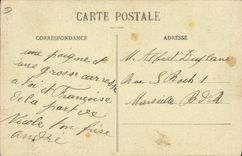 CARTE POSTALE
CORRESPONDANCE
ADRESSE
une poigne et
une grosse caresse
a toi et Françoise
de la part de
Nicole ton frère
andré
M. Albert
Rue St Roch 1
Marseille B.D.R